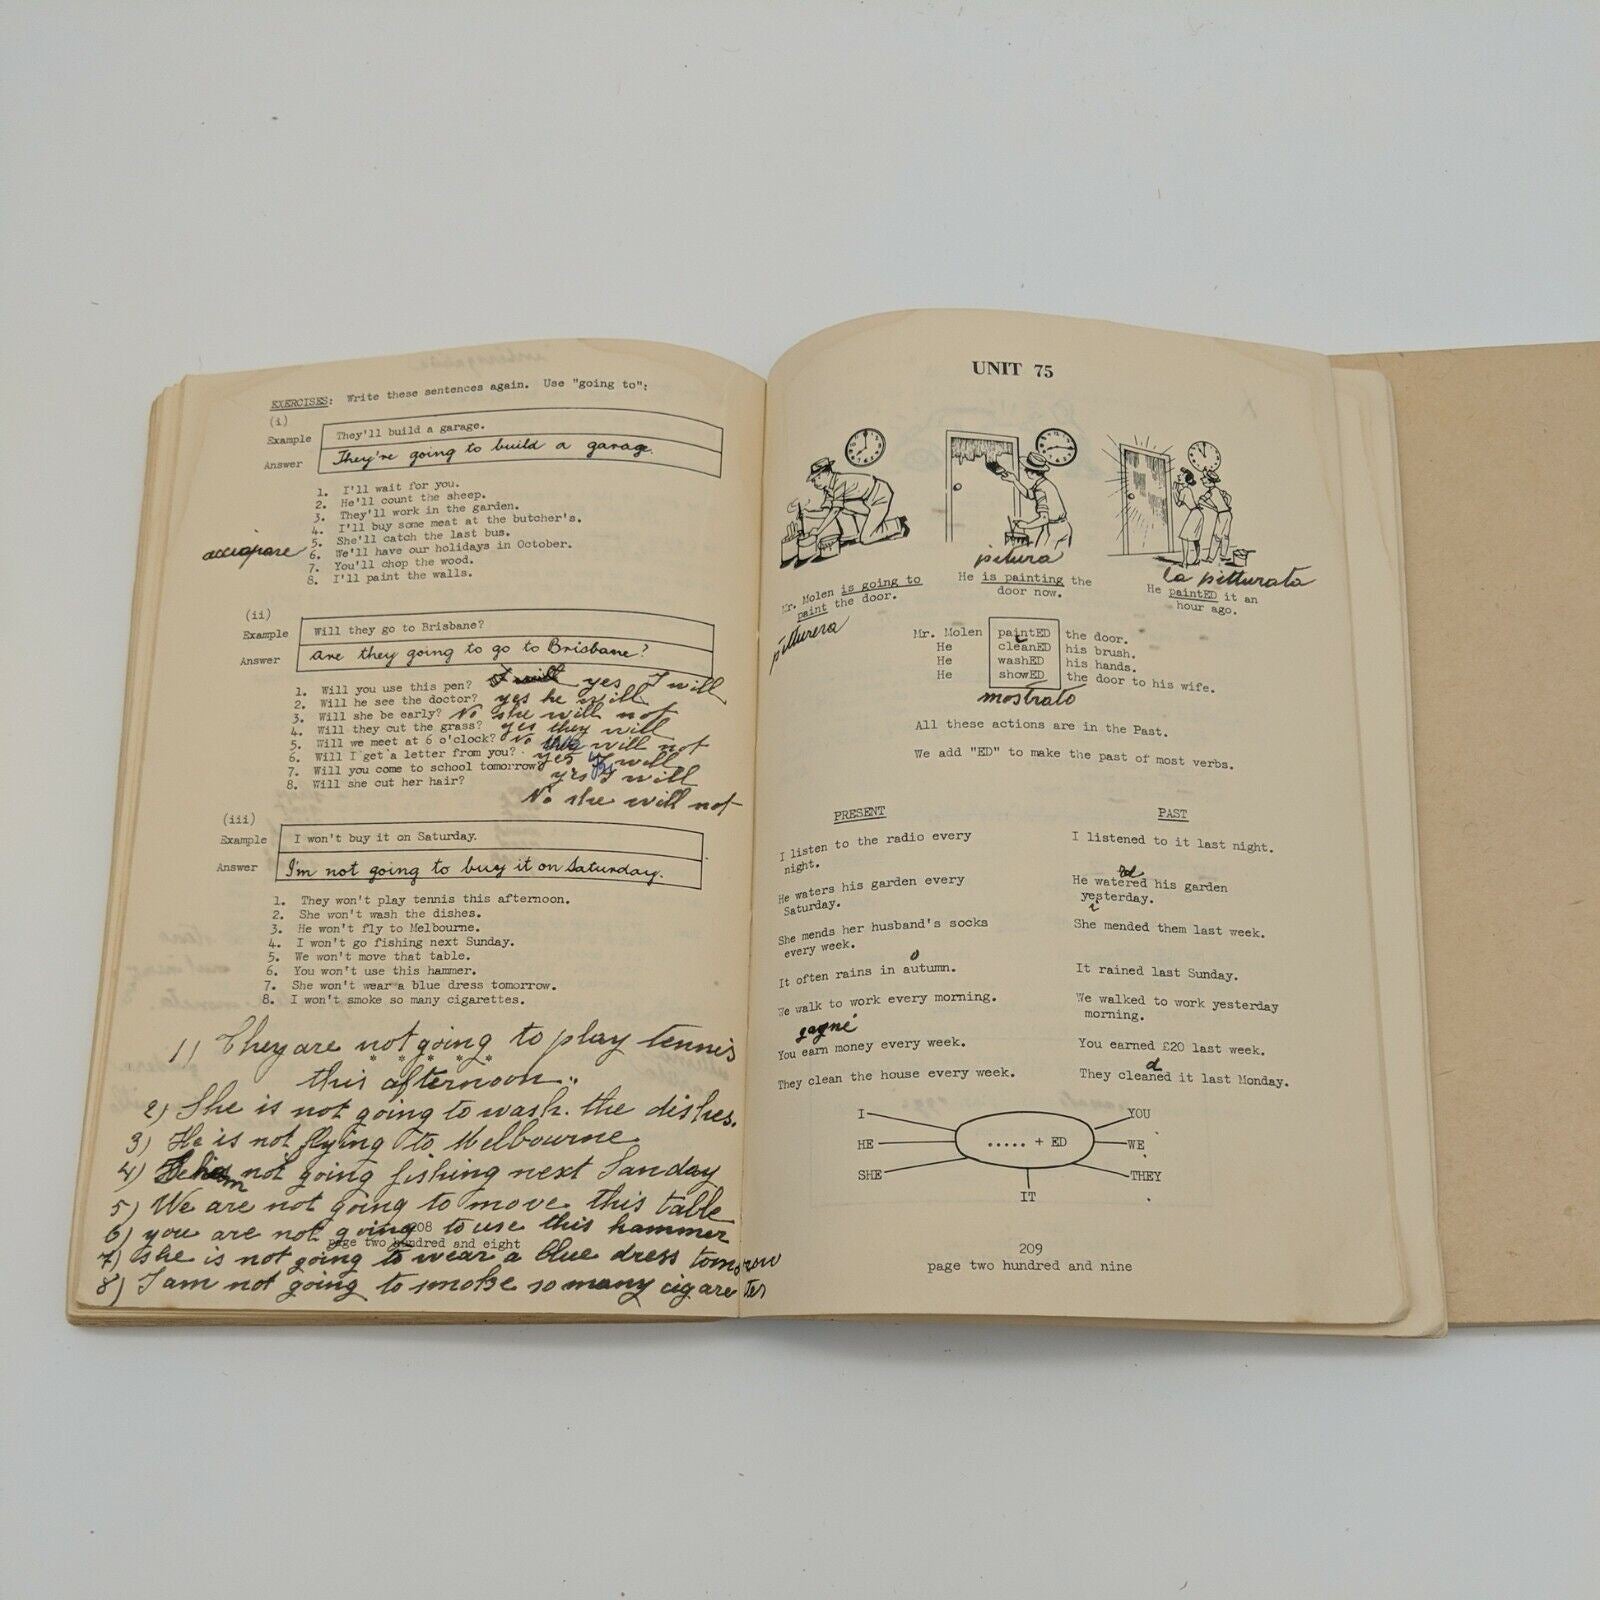 EXERCISES: Write these sentences again. Use "going to":
(i)
Example They'll build a garage.
Answer They're going to build a garage.
1. I'll wait for you.
2. He'll count the sheep.
3. They'll work in the garden.
4. I'll buy some meat at the butcher's.
5. She'll catch the last bus.
6. We'll have our holidays in October.
7. You'll chop the wood.
8. I'll paint the walls.
(ii)
Example Will they go to Brisbane?
Answer Are they going to go to Brisbane?
1. Will you use this pen? I will yes I will
2. Will he see the doctor? yes he will
3. Will she be early? No she will not
4. Will they cut the grass? yes they will
5. Will we meet at 6 o'clock? No will not
6. Will I get a letter from you? yes will
7. Will you come to school tomorrow? yes I will
8. Will she cut her hair?
No she will not
(iii)
Example I won't buy it on Saturday.
Answer I'm not going to buy it on Saturday.
1. They won't play tennis this afternoon.
2. She won't wash the dishes.
3. He won't fly to Melbourne.
4. I won't go fishing next Sunday.
5. We won't move that table.
6. You won't use this hammer.
7. She won't wear a blue dress tomorrow.
8. I won't smoke so many cigarettes.
1) They are not going to play tennis
* * * * *
this afternoon.
2) She is not going to wash. the dishes.
3) He is not flying to Melbourne
4) not going fishing next Sanday
5) We are not going to move this table
6) you are not going to use this hammer
208
page two hundred and eight
7) she is not going to wear a blue dress tomorrow
8) I am not going to smoke so many cigareter
UNIT 75
pitura
la pitturata
Mr. Molen is going to
paint the door.
pitturera
He is painting the
door now.
He paintED it an
hour ago.
Mr. Molen paintED the door.
He cleanED his brush.
He washED his hands.
He showED the door to his wife.
mostrato
All these actions are in the Past.
We add "ED" to make the past of most verbs.
PRESENT PAST
I listen to the radio every
night.
I listened to it last night.
He waters his garden every
Saturday.
ed
He watered his garden
yesterday.
i
She mends her husband's socks
every week.
She mended them last week.
o
It often rains in autumn.
It rained last Sunday.
We walk to work every morning.
We walked to work yesterday
morning.
gagné
You earn money every week.
You earned £20 last week.
d
They clean the house every week.
They cleaned it last Monday.
I YOU
HE ..... + ED WE
SHE THEY
IT
209
page two hundred and nine